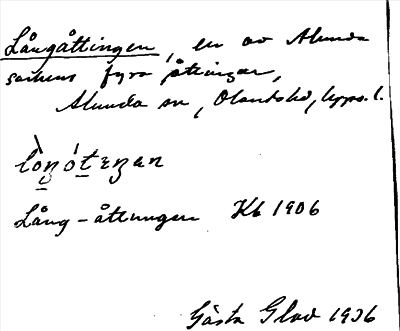 Långåttingen, en av Alunda
sockens fyra åttingar,
Alunda sn, Olandshd, Upps. l.
lòŋótɛŋan
Lång-åttungen Kb 1906
Gösta Glad 1936